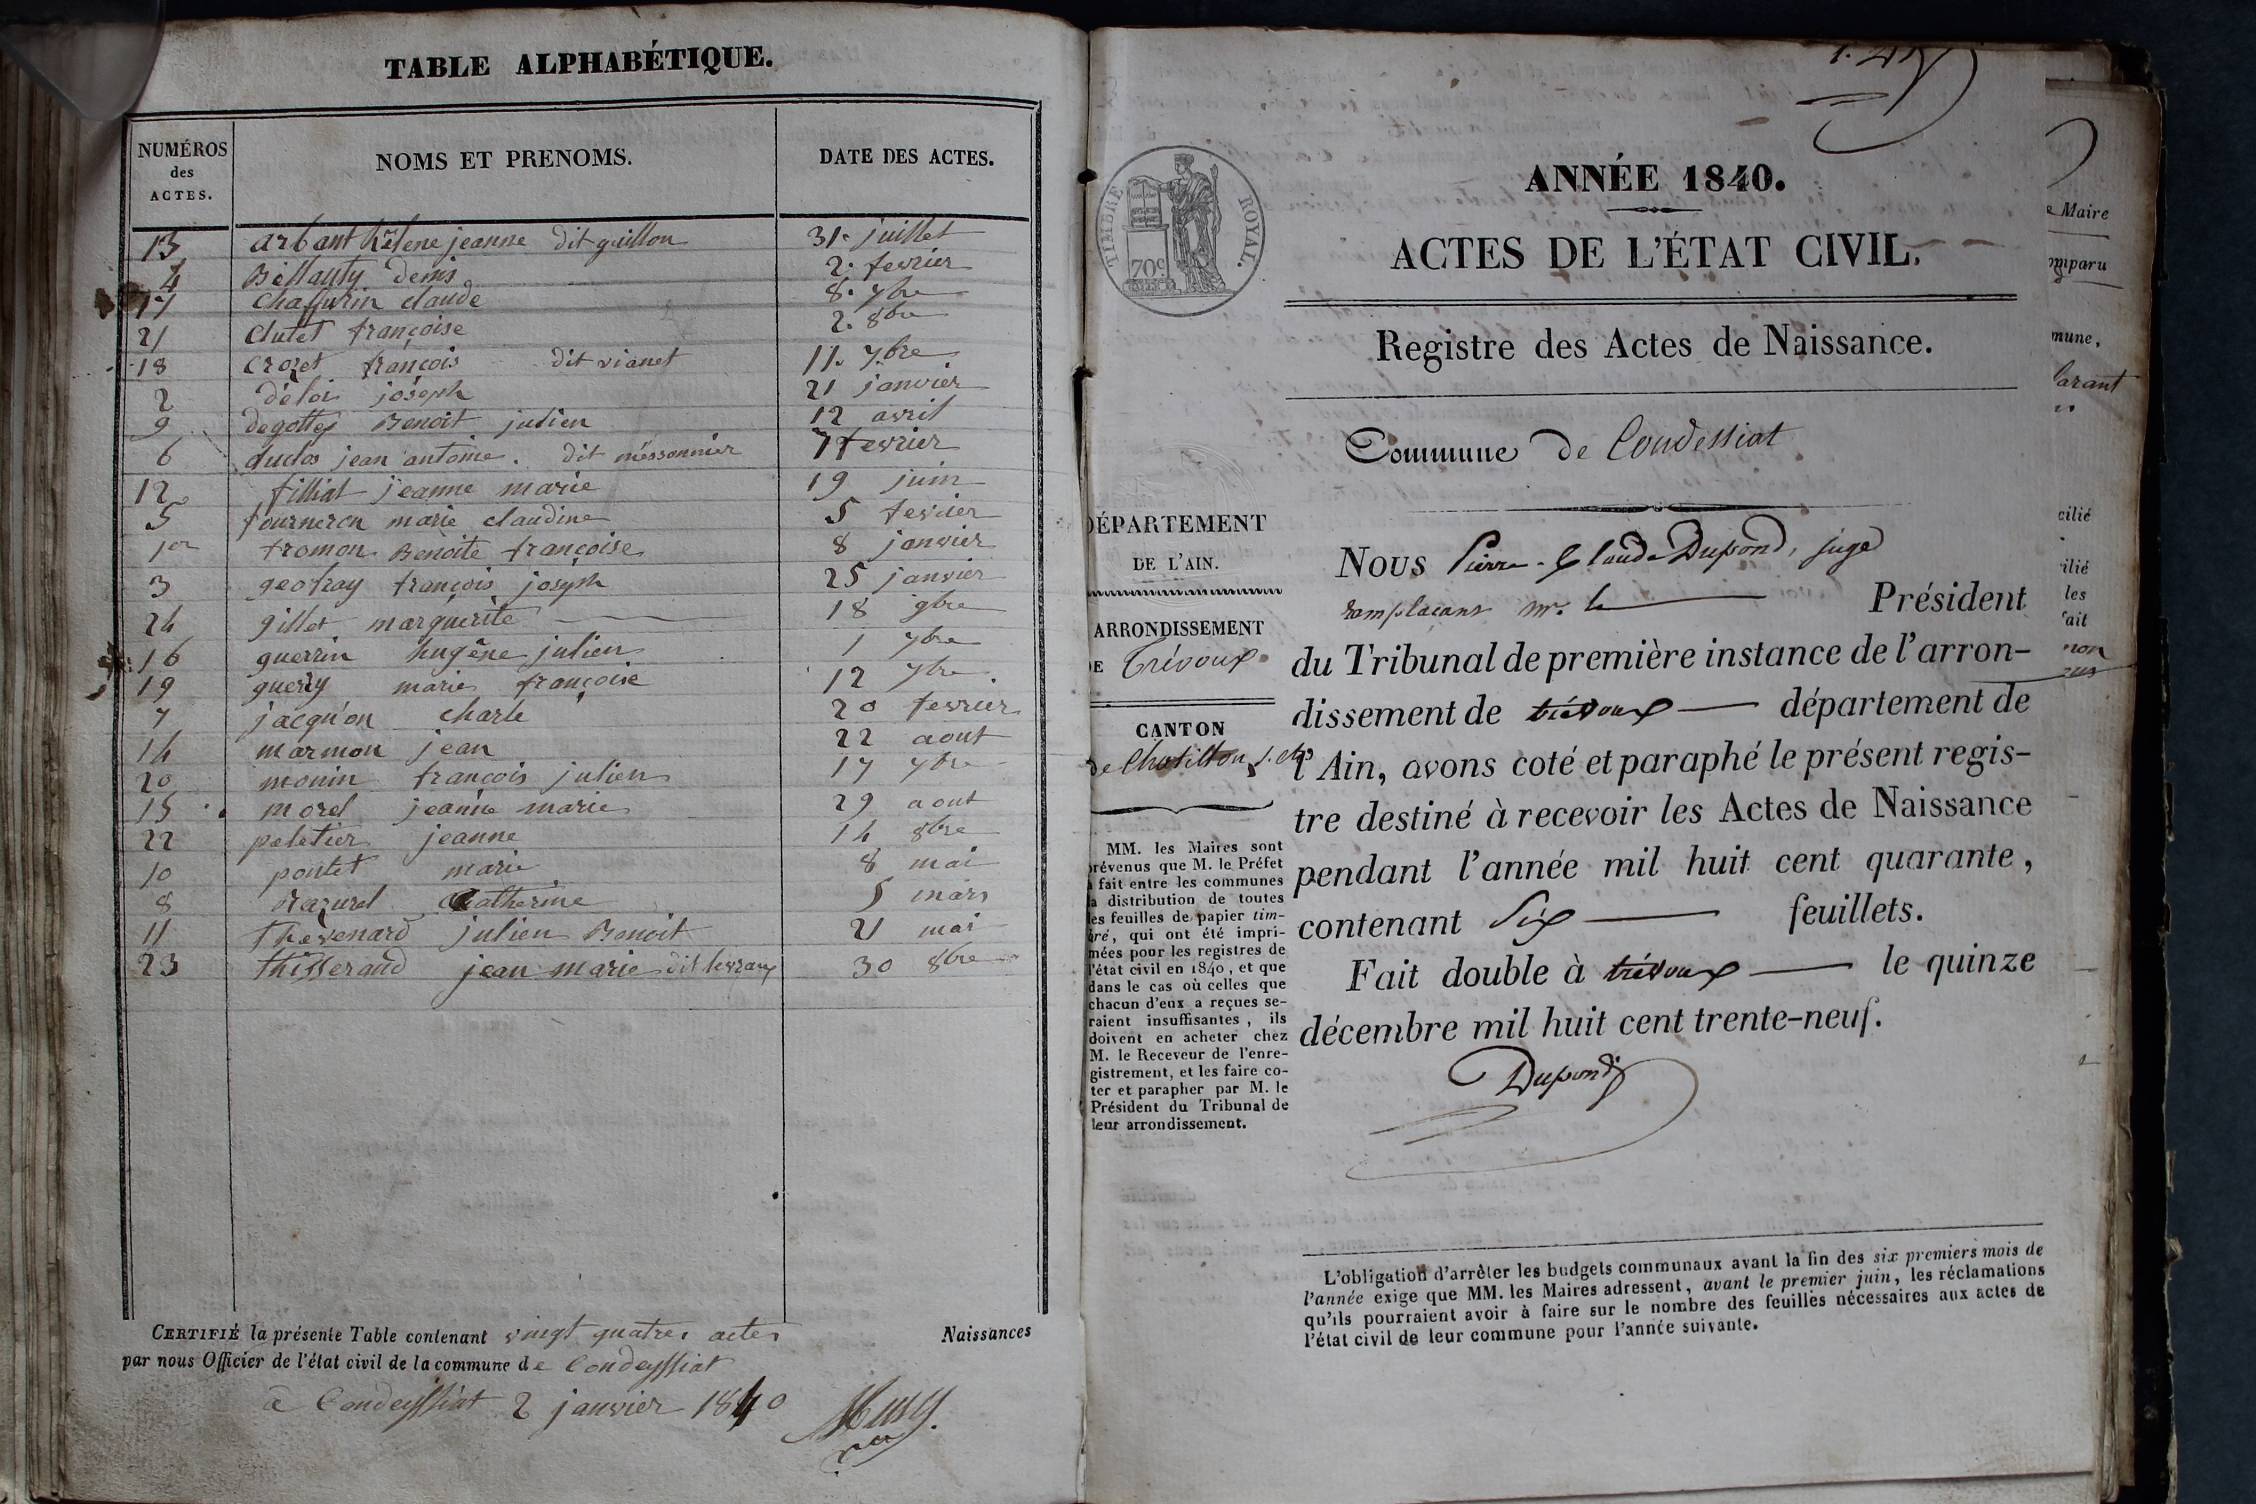 TABLE ALPHABÉTIQUE.
NUMÉROS des ACTES. NOMS ET PRENOMS. DATE DES ACTES.
13 arbant hélene jeanne dit guillon 31. juillet
4 Bellauty denis 2. fevrier
17 Chaffurin claude 8. 7bre
21 Clutet françoise 2. 8bre
18 Crozet françois dit vianet 11. 7bre
2 déloi joseph 21 janvier
9 degottes Benoit julien 12 avril
6 duclos jean antoine. dit méssonnier 7 fevrier
12 filliat jeanne marie 19 juin
5 fourneron marie claudine 5 fevrier
1er fromon Benoite françoise 8 janvier
3 geofray françois joseph 25 janvier
24 gillet marguerite 18 9bre
16 guerrin hugêne julien 1 7bre
19 guerry marie françoise 12 7bre.
7 jacqu'on charle 20 fevrier
14 marmon jean 22 aout
20 monin francois julien 17 7bre
15 morel jeanne marie 29 aout
22 peletier jeanne 14 8bre
10 pontet marie 8 mai
8 Razurel Catherine 5 mars
11 thevenard julien Benoit 21 mai
23 thisserand jean marie dit levrau 30 8bre
CERTIFIÉ la présente Table contenant vingt quatre actes Naissances
par nous Officier de l'état civil de la commune de Condeyssiat
a Condeyssiat 2 janvier 1840
TIMBRE ROYAL.
70c
ANNÉE 1840.
ACTES DE L'ÉTAT CIVIL.
Registre des Actes de Naissance.
Commune de Condessiat
DÉPARTEMENT
DE L'AIN.
ARRONDISSEMENT
DE Trévoux.
CANTON
de Chatillon s. ch
MM. les Maires sont
prévenus que M. le Préfet
a fait entre les communes
la distribution de toutes
les feuilles de papier tim-
bré, qui ont été impri-
mées pour les registres de
l'état civil en 1840, et que
dans le cas où celles que
chacun d'eux a reçues se-
raient insuffisantes, ils
doivent en acheter chez
M. le Receveur de l'enre-
gistrement, et les faire co-
ter et parapher par M. le
Président du Tribunal de
leur arrondissement.
Nous Pierre-Claude Dupond, juge
remplacant mr. le Président
du Tribunal de première instance de l'arron-
dissement de trévoux département de
l'Ain, avons coté et paraphé le présent regis-
tre destiné à recevoir les Actes de Naissance
pendant l'année mil huit cent quarante,
contenant Six feuillets.
Fait double à trévoux le quinze
décembre mil huit cent trente-neuf.
Dupond
L'obligation d'arrêter les budgets communaux avant la fin des six premiers mois de
l'année exige que MM. les Maires adressent, avant le premier juin, les réclamations
qu'ils pourraient avoir à faire sur le nombre des feuilles nécessaires aux actes de
l'état civil de leur commune pour l'année suivante.
Maire
omparu
mune,
larant
cilié
ilié
les
fait
non